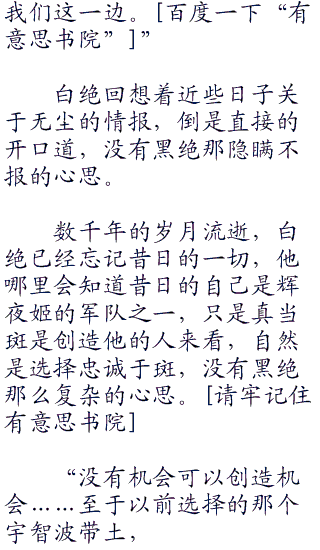 我们这一边。[百度一下“有
意思书院”]”
白绝回想着近些日子关
于无尘的情报，倒是直接的
开口道，没有黑绝那隐瞒不
报的心思。
数千年的岁月流逝，白
绝已经忘记昔日的一切，他
哪里会知道昔日的自己是辉
夜姬的军队之一，只是真当
斑是创造他的人来看，自然
是选择忠诚于斑，没有黑绝
那么复杂的心思。[请牢记住
有意思书院]
“没有机会可以创造机
会……至于以前选择的那个
宇智波带土，